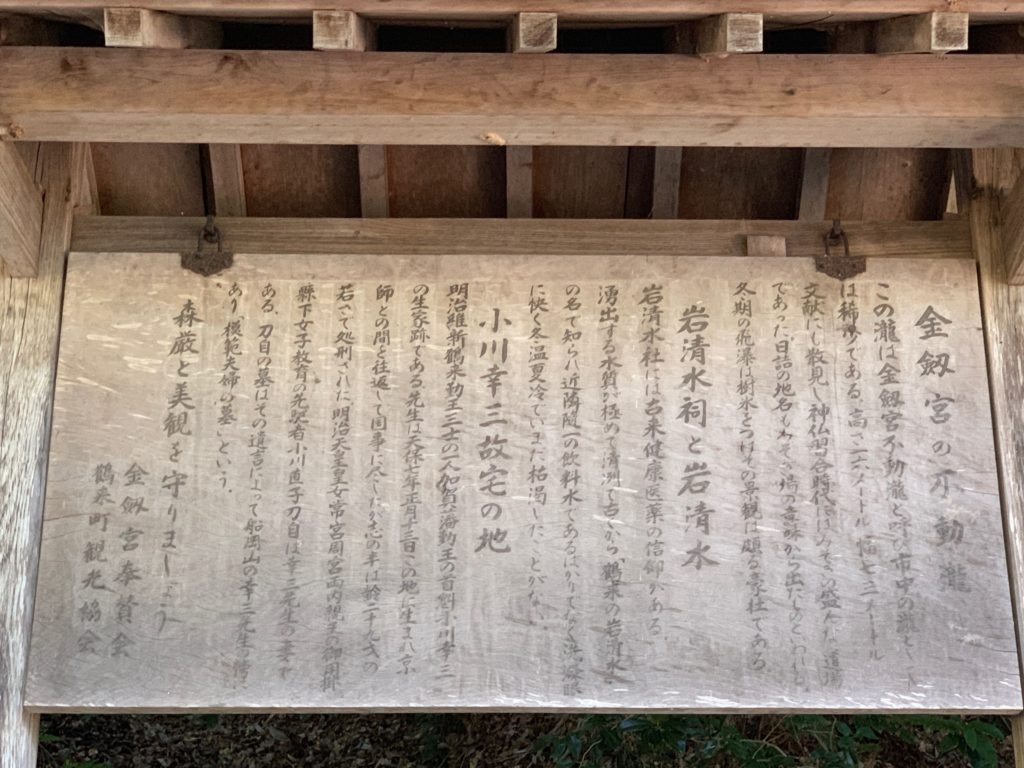 金劔宮の不動瀧
この瀧は金劔宮不動瀧と呼び市中の瀧として
は稀少である、高さ二六メートル幅七、三メートル
文献にも散見し神仏習合時代にはみそぎの盛んな道場
であった日詰の地名もみそぎ場の意味から出たものといわれ
冬期の飛瀑は樹氷をつけその景観は頗る豪壮である
岩清水祠と岩清水
岩清水社には古来健康医薬の信仰がある
湧出する水質が極めて清冽で古くから「鶴来の岩清水」
の名で知られ近隣随一の飲料水であるばかりでなく洗浴眼
に快く冬温夏冷でいまだ枯渇したことがない
小川幸三故宅の地
明治維新鶴来勤王三士の一人加賀藩勤王の首魁小川幸三
の生家跡である先生は天保七年正月十三日この地に生まれ京
師との間を往返して国事に尽くした志の半ば齢二十九才の
若さで処刑された明治天皇皇女常宮周宮両内親王の御用掛
縣下女子教育の先覚者小川直子刀自は幸三先生の妻で
ある、刀自の墓はその遺言によって船岡山の幸三先生の傍に
あり「模範夫婦の墓」という、
森厳と美観を守りましょう
金劔宮奉賛会
鶴来町観光協会